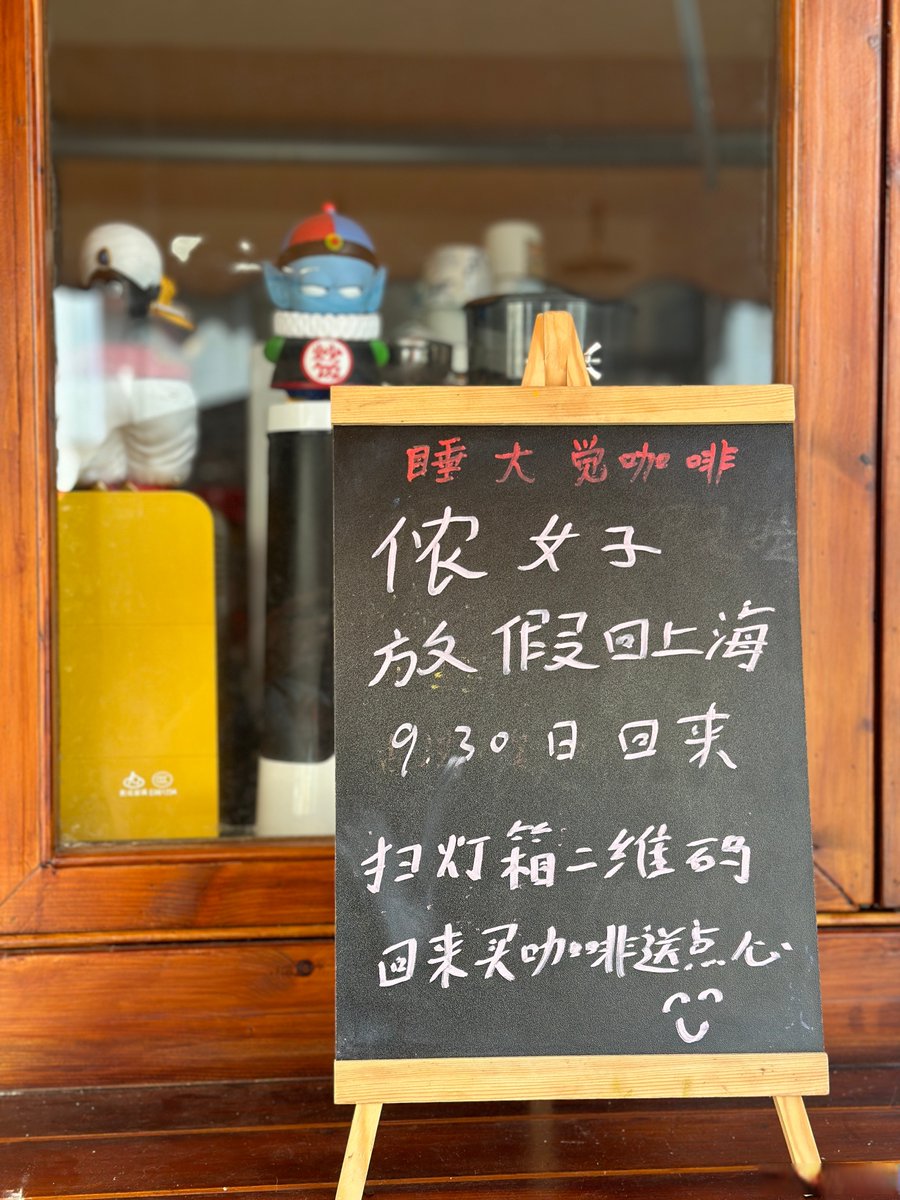 炒饭
睡大觉咖啡
侬女子
放假回上海
9.30日回来
扫灯箱二维码
回来买咖啡送点心